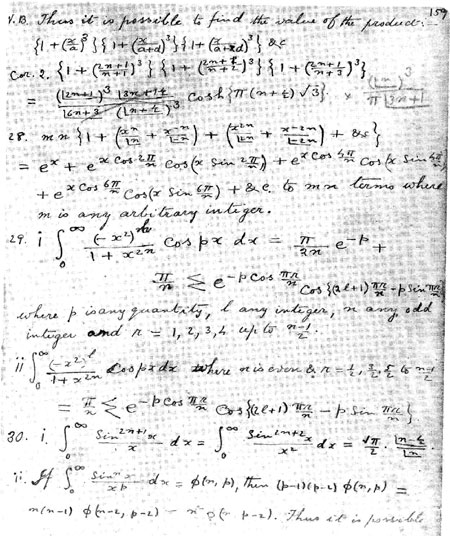 159
N.B. Thus it is possible to find the value of the product:—
{1+(x/a)^3}{1+(x/(a+d))^3}{1+(x/(a+2d))^3} &c
Cor. 2. {1+((2n+1)/(n+1))^3}{1+((2n+1)/(n+2))^3}{1+((2n+1)/(n+3))^3}
cosh{π(n+½)√3}.
28. mn{1+
+ &c}
= e^x + e^{x cos 2π/n} cos(x sin 2π/n) + e^{x cos 4π/n} cos(x sin 4π/n)
+ e^{x cos 6π/n} cos(x sin 6π/n) + &c. to mn terms where
m is any arbitrary integer.
29. i ∫_0^∞ (-x²)^l/(1+x^{2n}) cos px dx = π/2n e^{-p} +
π/n Σ e^{-p cos πr/n} cos{(2l+1)πr/n - p sin πr/n}
where p is any quantity, l any integer, n any odd
integer and r = 1, 2, 3, 4 up to (n-1)/2.
ii ∫_0^∞ (-x²)^l/(1+x^{2n}) cos px dx where n is even & r = ½, 3/2, 5/2 to (n-1)/2
= π/n Σ e^{-p cos πr/n} cos{(2l+1)πr/n - p sin πr/n}
30. i. ∫_0^∞ sin^{2n+1}x/x dx = ∫_0^∞ sin^{2n+2}x/x² dx = √π/2 · |n-½/|n.
ii. If ∫_0^∞ sin^n x/x^p dx = φ(n,p), then (p-1)(p-2) φ(n,p) =
n(n-1) φ(n-2, p-2) - n² φ(n p-2). Thus it is possible